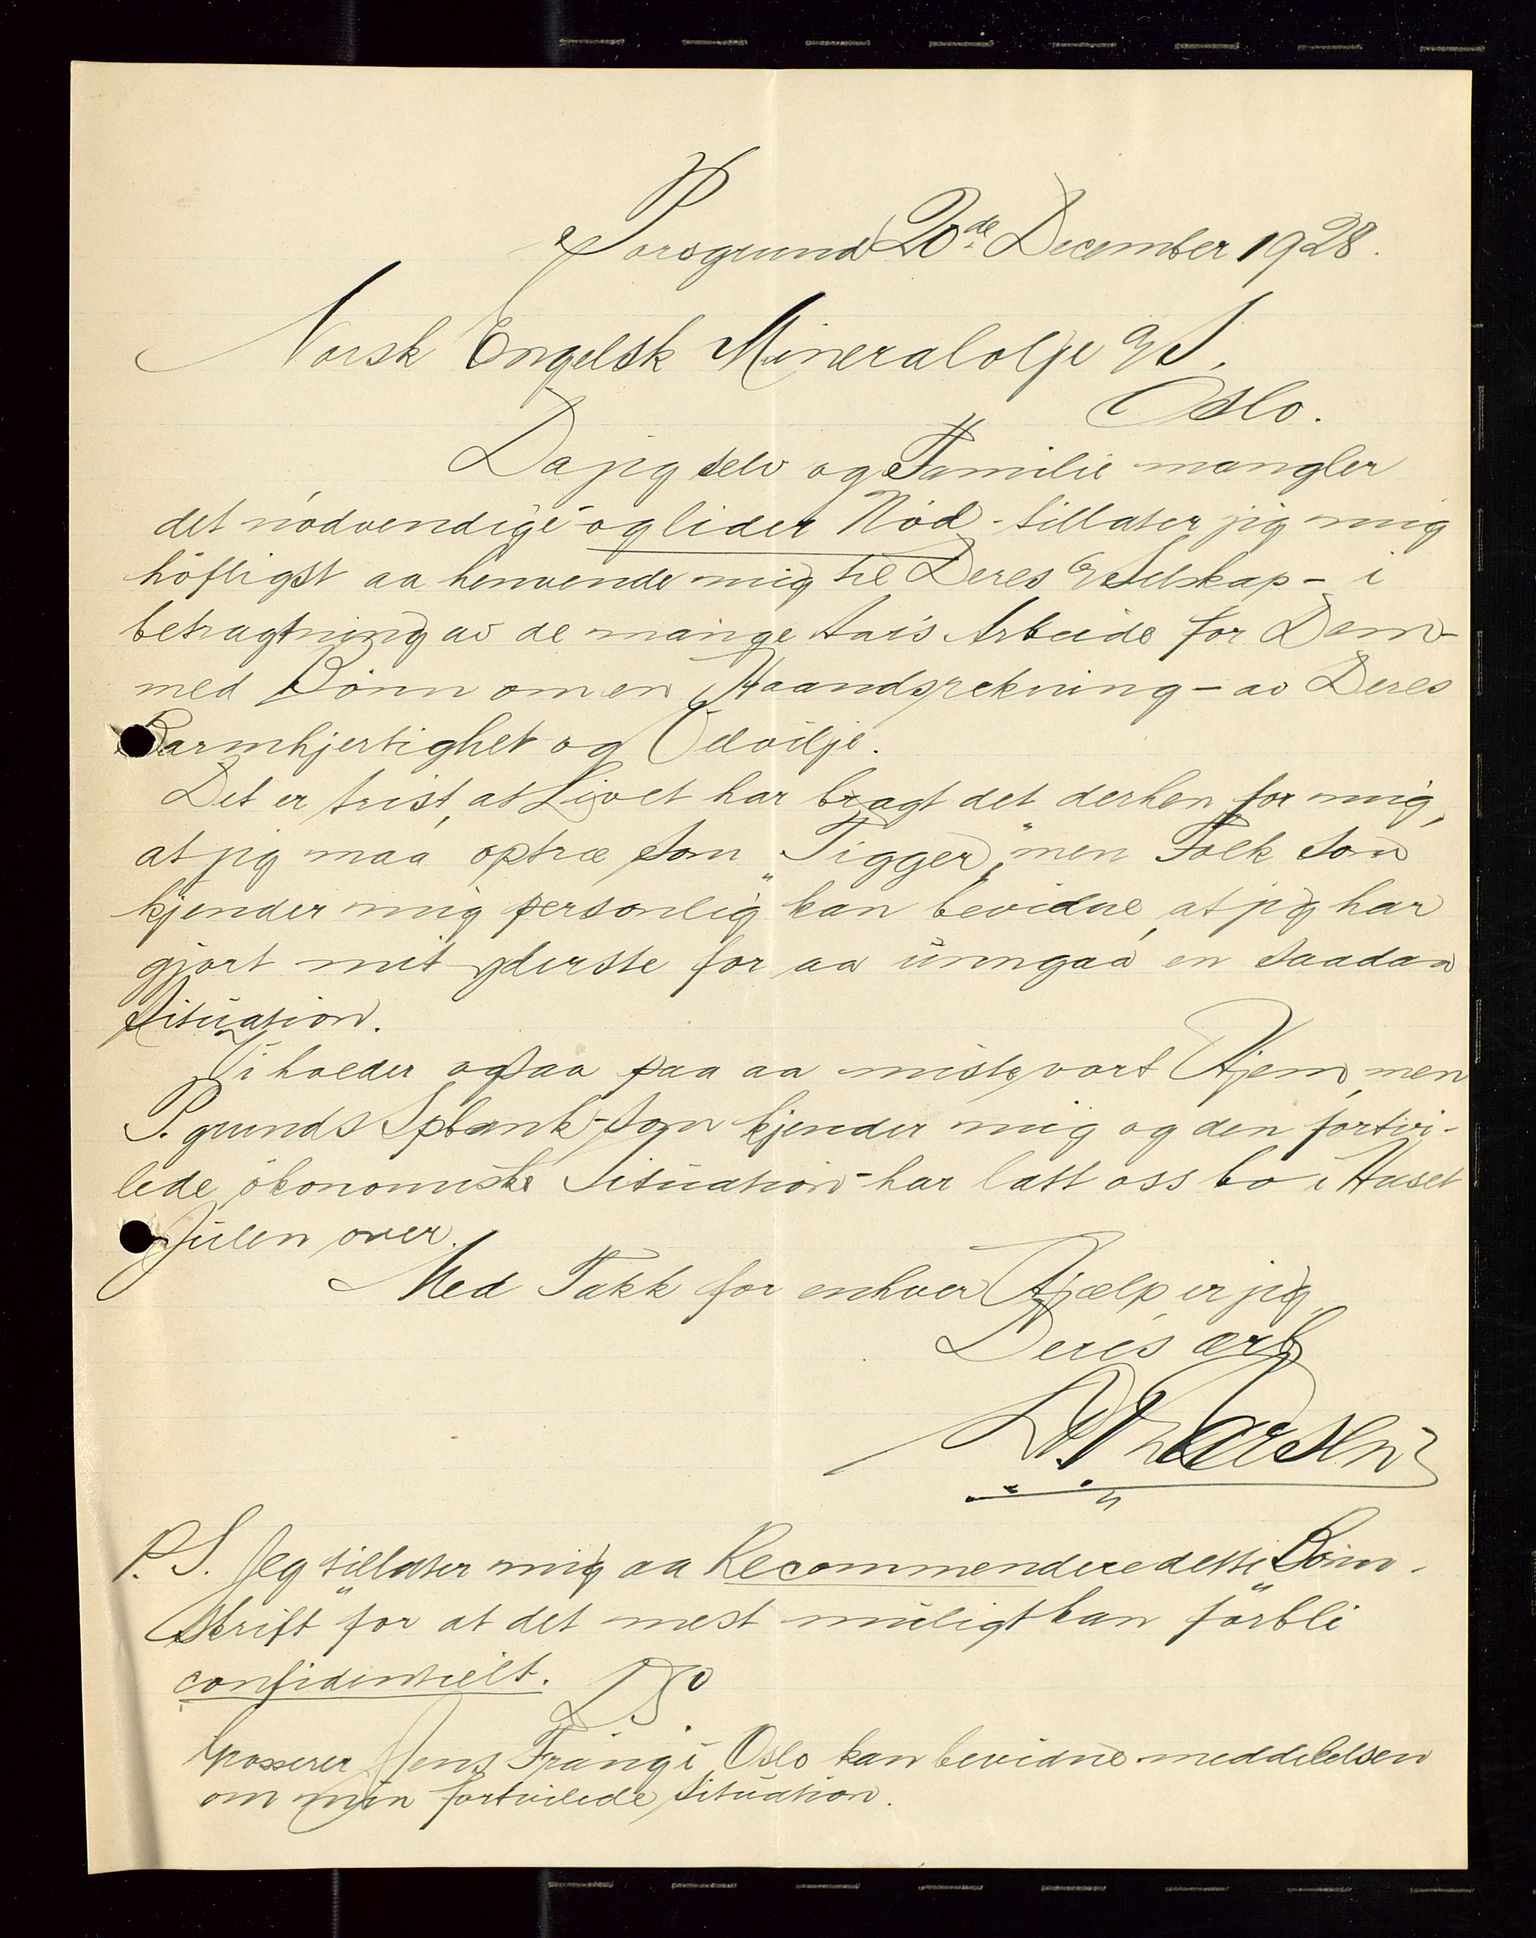 Porsgrund 20de December 1928.
Norsk Engelsk Mineralolje A/S.
Oslo.
Da jeg selv og Familie mangler
det nödvendige og lider Nöd - tillater jeg mig
höfligst aa henvende mig til Deres Selskap - i
betragtning av de mange Aar's Arbeide for Dem -
med Bönn om en Haandsrekning - av Deres
Barmhjertighet og Velvilje.
Det er trist, at Livet har bragt det derhen for mig,
at jeg maa optræ som „Tigger“, men Folk som
kjender mig personlig kan bevidne, at jeg har
gjort mit yderste for aa unngaa en saadan
Situation.
Vi holder ogsaa paa aa miste vort Hjem, men
P.grunds Spbank - som kjender mig og den fortvi-
lede ökonomiske Situation - har latt oss bo i Huset
Julen over.
Med Takk for enhver Hjælp er jeg
Deres ærb
Larsen
P.S. Jeg tillater mig aa Recommendere dette „Bönn-
skrift“ for at det mest muligt kan forbli
confidentielt. DS
Grosserer Jens Trang i Oslo kan bevidne meddelelsen
om min fortvilede situation.